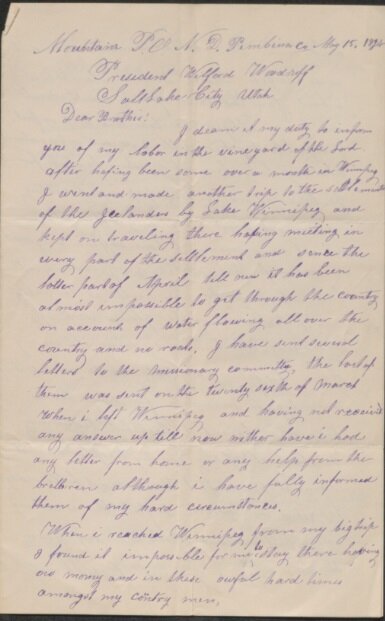 Mountain P.O. N. D. Pembina Co May 15, 1894
President Wilford Woodruff
Salt Lake City Utah
Dear Brother:
I deam it my duty to inform
you of my labor in the vineyard of the Lord.
after hafing been some over a month in Winnipeg
I went and made another trip to the settlements
of the Icelanders by Lake Winnipeg and
kept on traveling there hafing meeting in
every part of the settlement and sence the
latter part of April till now it has been
almost impossible to get through the country
on account of water flowing all over the
country and no roads, I have sent several
letters to the missionary committy the last of
them was sent on the twenty sexth of March
when i left Winnipeg and having not received
any answer up till now nither have i had
any letter from home or any help from the
brethren although i have fully informed
them of my hard circumstances.
When i reached Winnipeg from my big trip
I found it impossible for me to stay there having
no money and in these owful hard times
amongst my contry men,